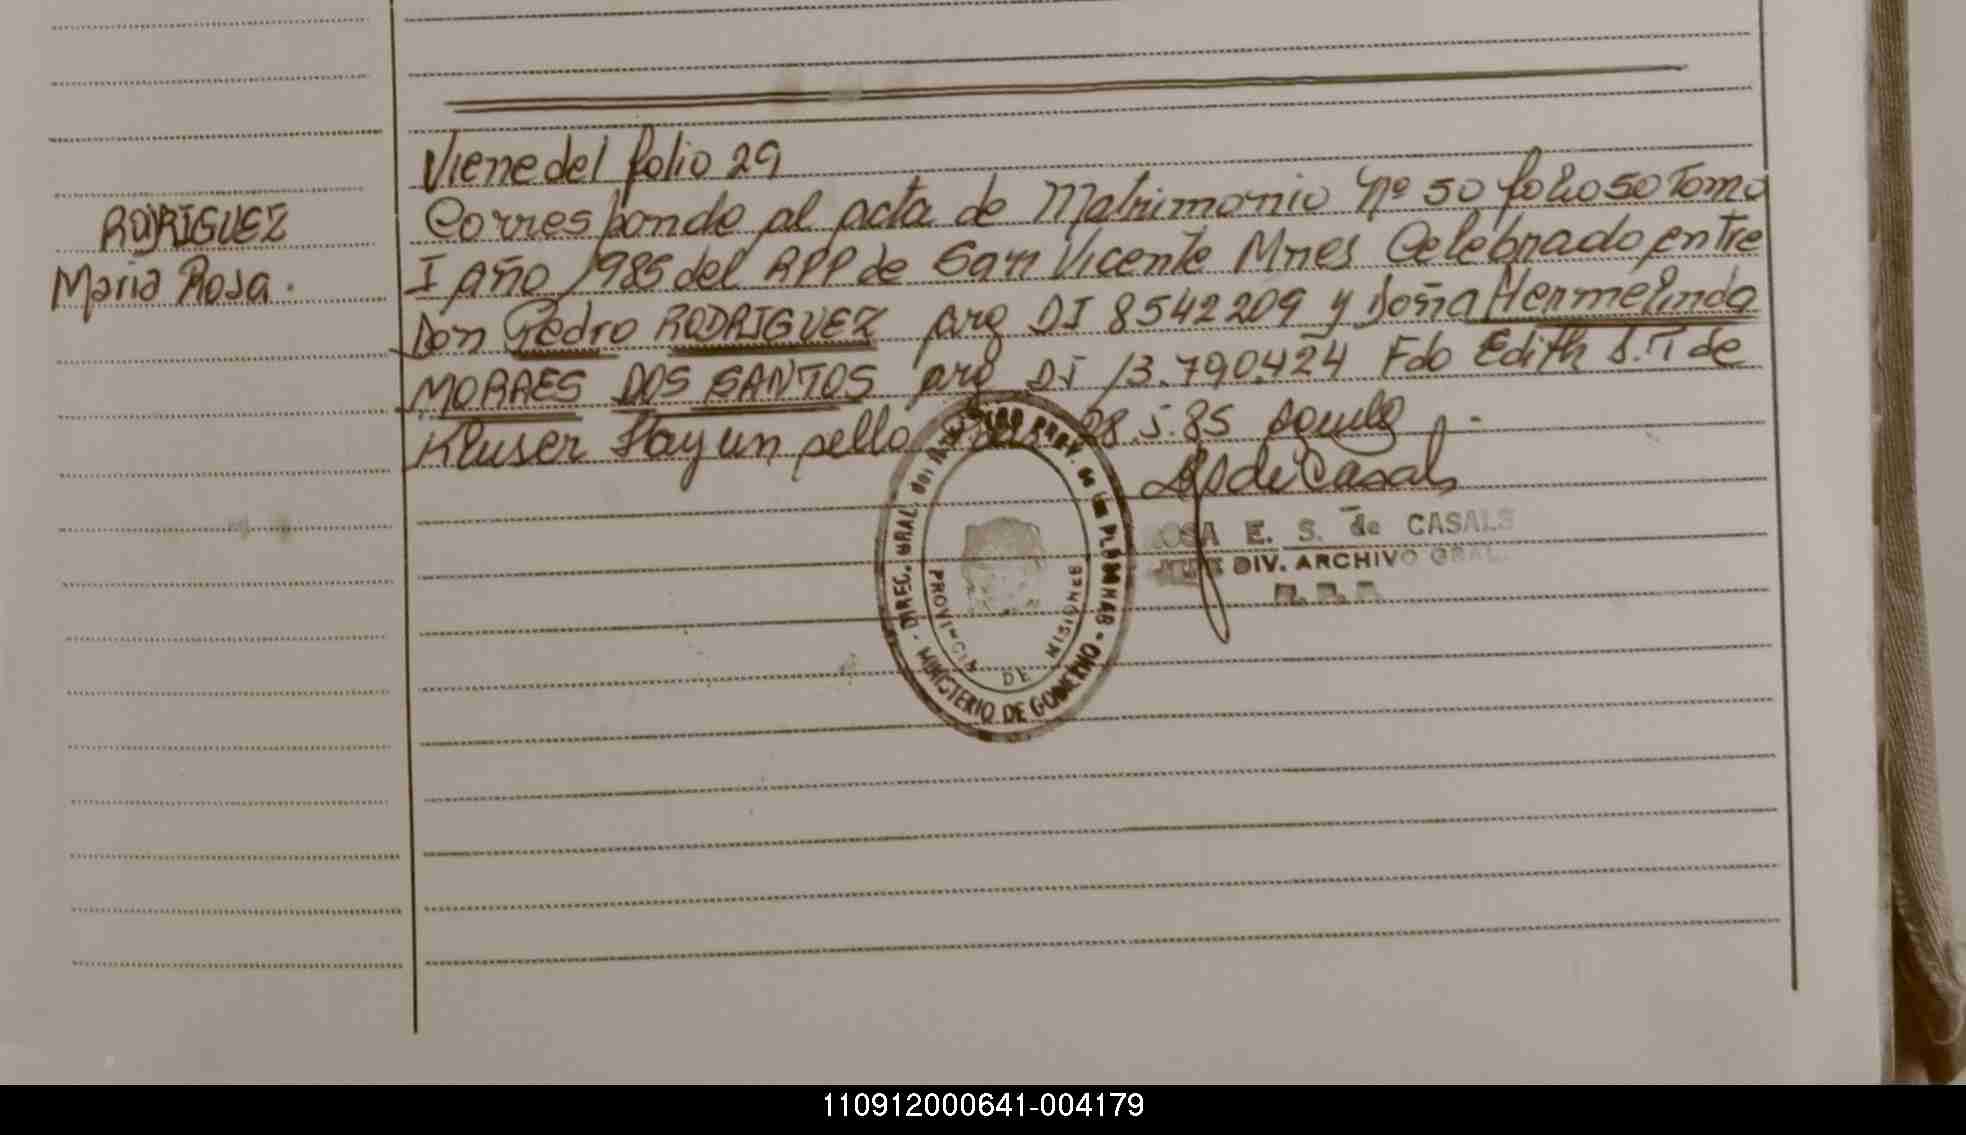 Viene del folio 29
RODRIGUEZ
Maria Rosa.
Corresponde al acta de Matrimonio Nº 50 folio 50 Tomo
I año 1985 del RPP de San Vicente Mnes Celebrado entre
Don Pedro RODRIGUEZ arg DI 8542209 y doña Hermelinda
MORAES DOS SANTOS arg DI 13.790.424 Fdo Edith S.T de
Kluser Hay un sello 28.5.85
de Casals
E. S. de CASALS
DIV. ARCHIVO GRAL.
DIREC. GRAL. del REG. PROV. de las PERSONAS - MINISTERIO DE GOBIERNO -
PROVINCIA DE MISIONES
110912000641-004179